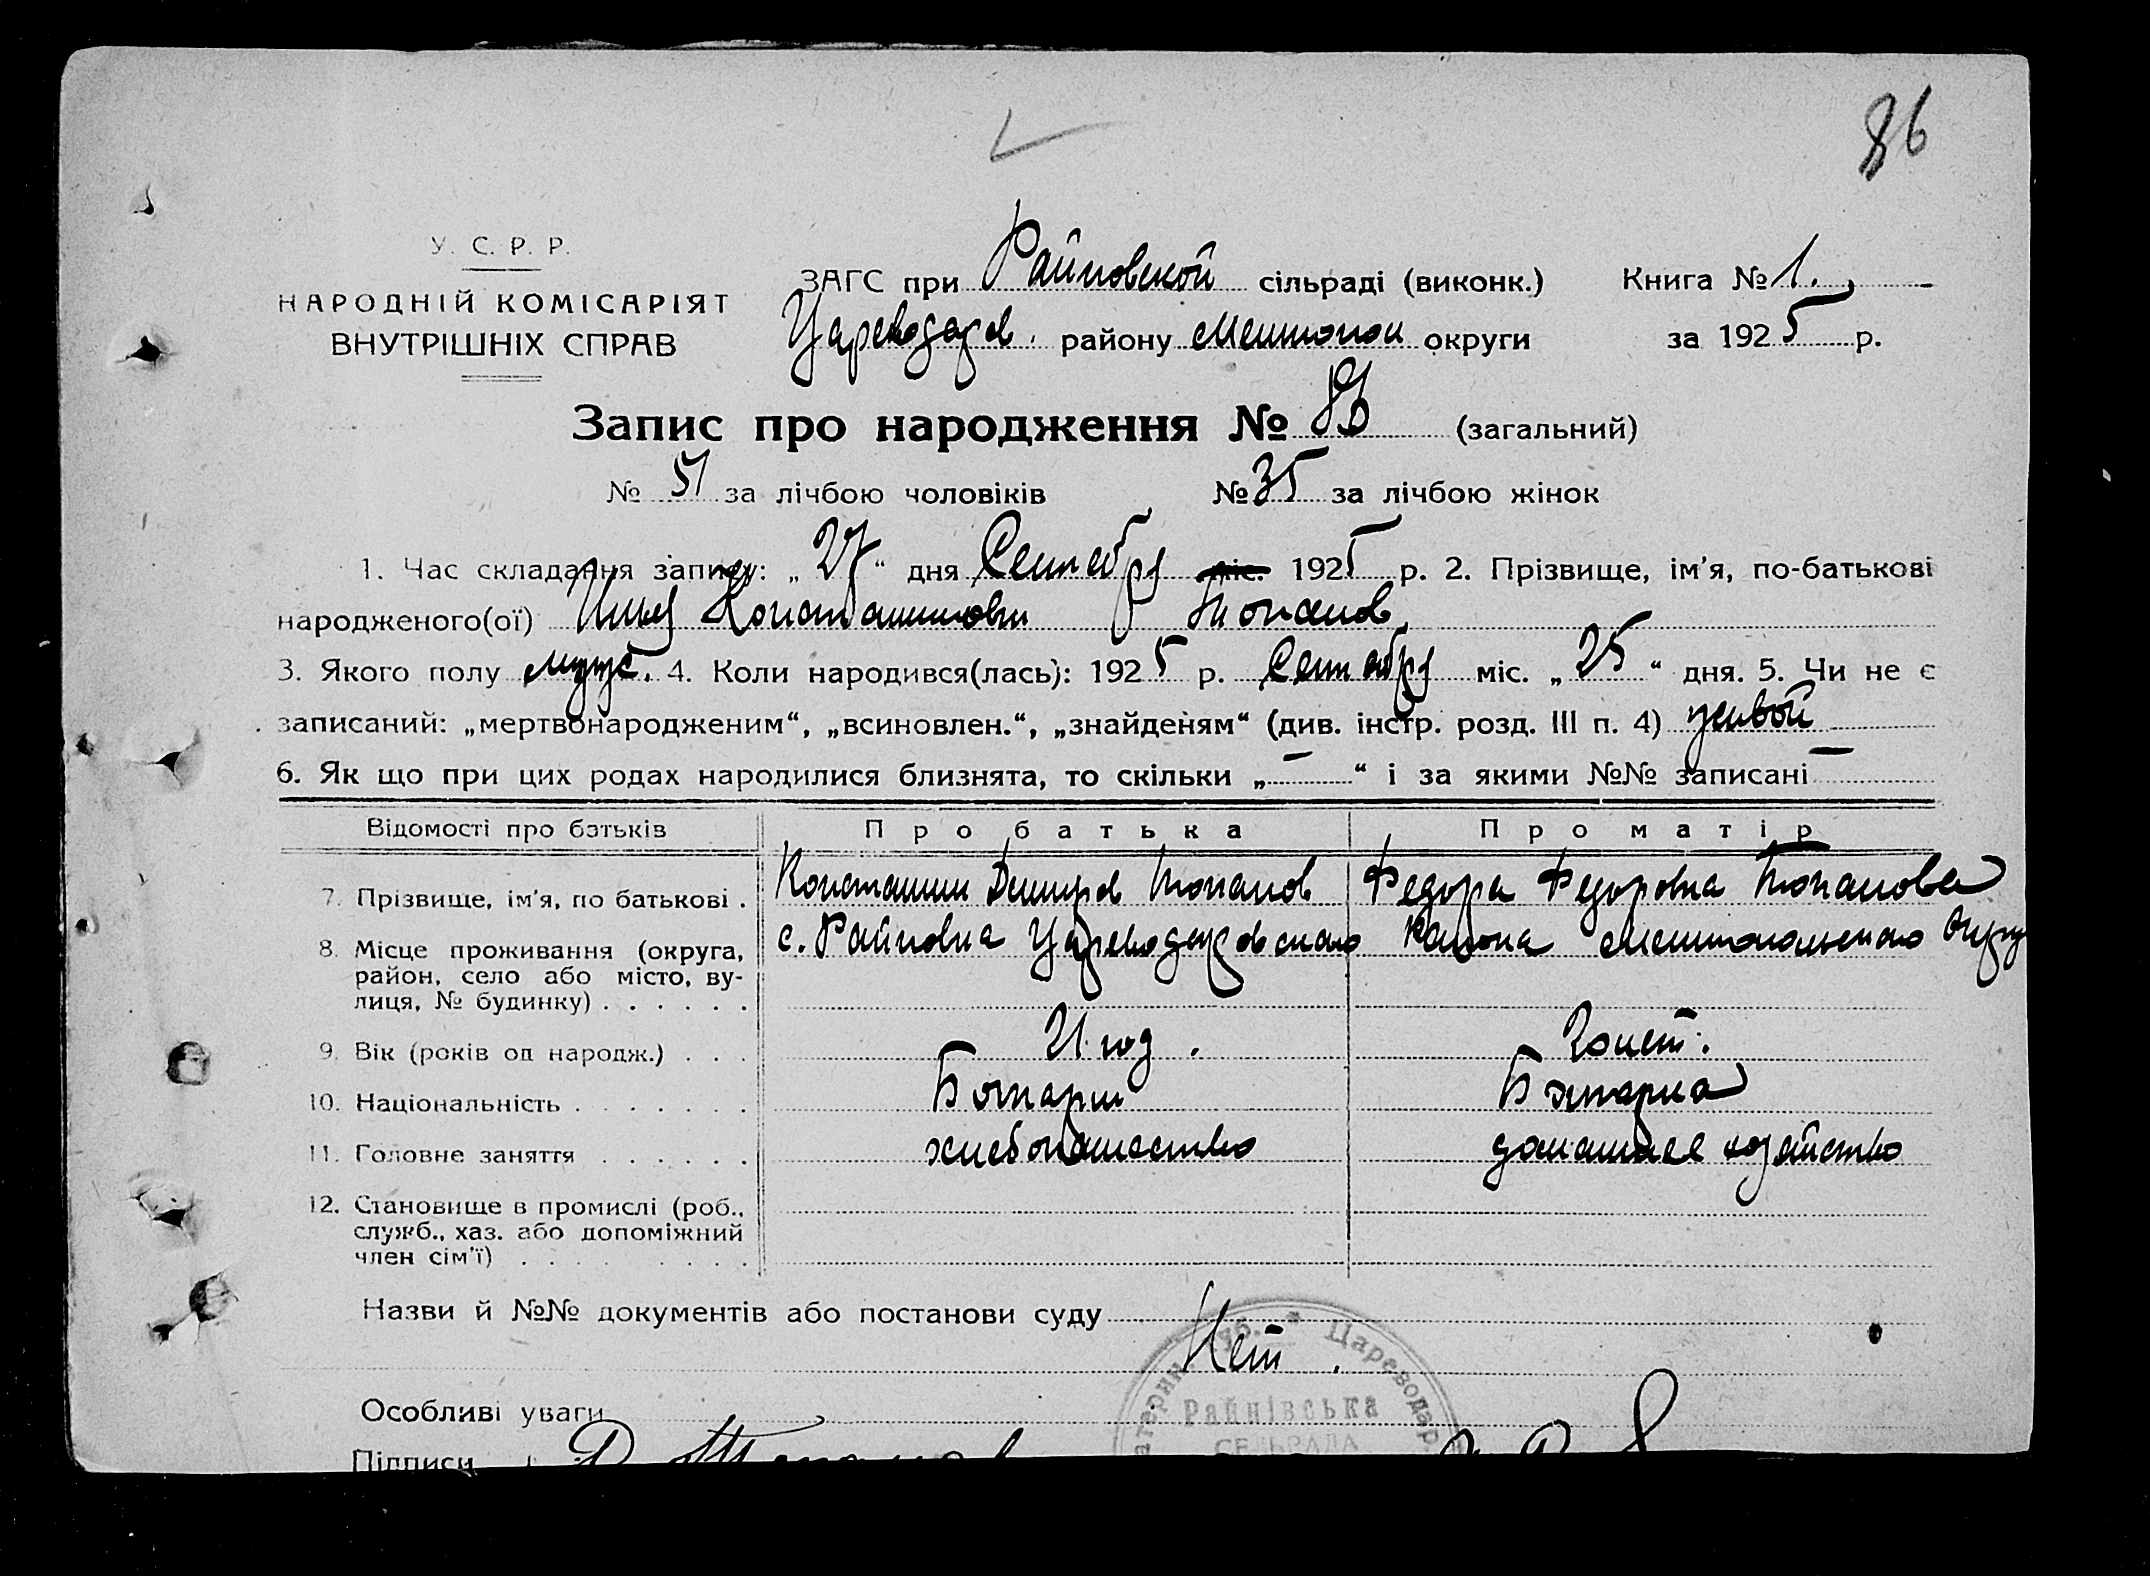 86
У. С. Р. Р.
НАРОДНІЙ КОМІСАРІЯТ
ВНУТРІШНІХ СПРАВ
ЗАГС при Райновской сільраді (виконк.) Книга № 1.
Цареводаров. району Мелитопол округи за 1925 р.
Запис про народження № 86 (загальний)
№ 51 за лічбою чоловіків № 35 за лічбою жінок
1. Час складання запису: „27“ дня Сентября міс. 1925 р. 2. Прізвище, ім'я, по-батькові
народженого(ої) Илья Константинович Топалов
3. Якого полу мужс. 4. Коли народився(лась): 1925 р. Сентября міс. „25“ дня. 5. Чи не є
записаний: „мертвонародженим“, „всиновлен.“, „знайденям“ (див. інстр. розд. III п. 4) живой
6. Як що при цих родах народилися близнята, то скільки „—“ і за якими №№ записані —
Відомості про батьків Про батька Про матір
7. Прізвище, ім'я, по батькові . Константин Дмитров Топалов Федора Федоровна Топалова
8. Місце проживання (округа, с. Райновка Цареводаровского Района Мелитопольского Округ
район, село або місто, ву-
лиця, № будинку) . . . . . .
9. Вік (років од народж.) . . . 21 год. 20 лет.
10. Національність . . . . . . . Болгарин Болгарка
11. Головне заняття . . . . . . хлебопашество домашнее хозяйство
12. Становище в промислі (роб.,
служб., хаз. або допоміжний
член сім'ї) . . . . . . . .
Назви й №№ документів або постанови суду
Нет.
Цареводар.
Райнівська
СЕЛЬРАДА
Особливі уваги
Підписи